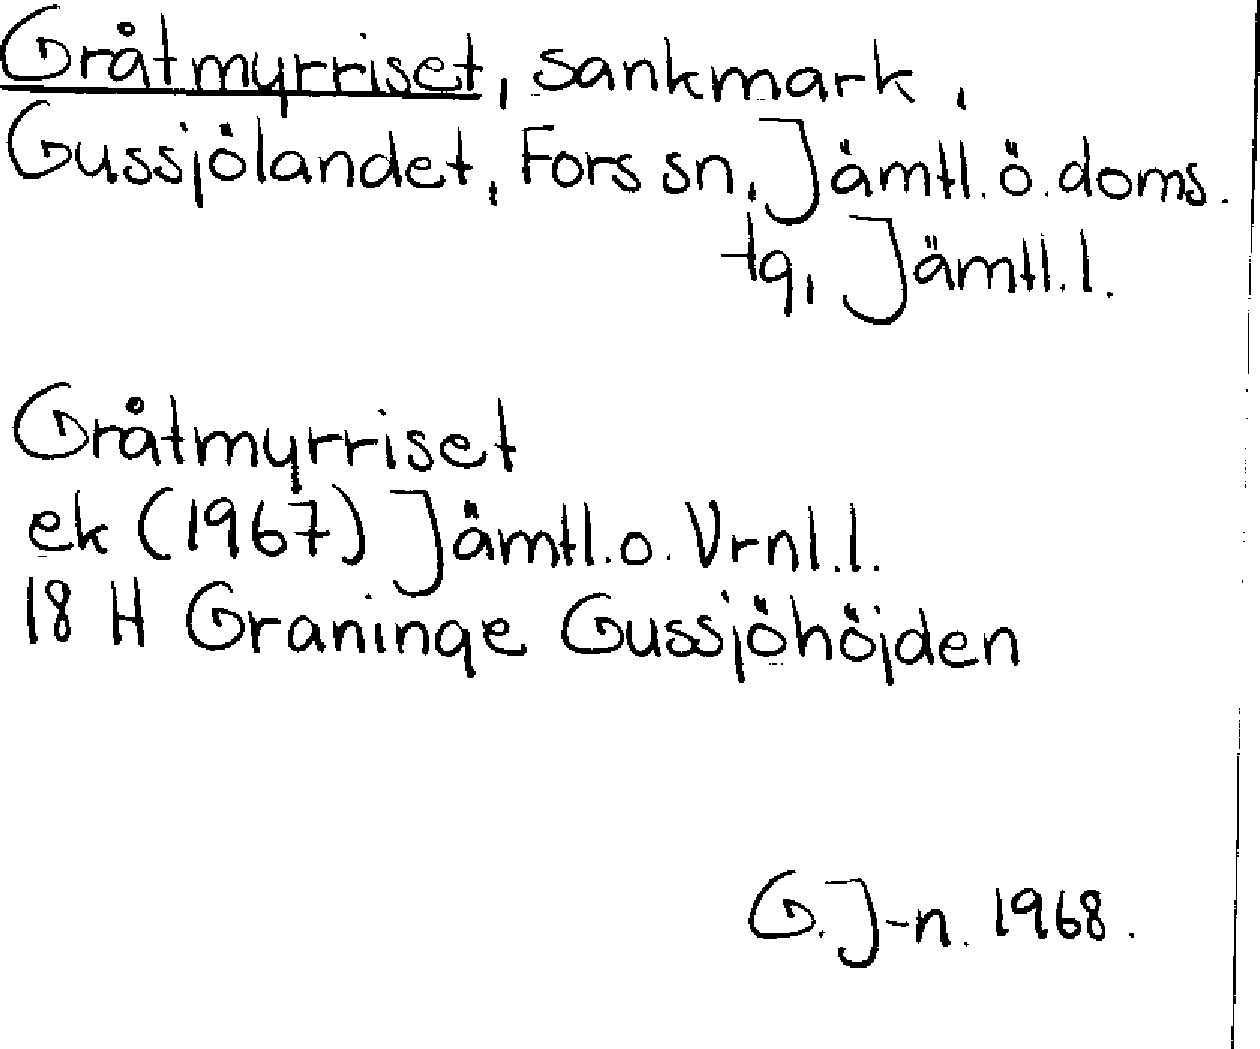 Gråtmyrriset, sankmark,
Gussjölandet, Fors sn, Jämtl. ö. doms.
tg, Jämtl. l.
Gråtmyrriset
ek (1967) Jämtl. o. Vrnl. l.
18 H Graninge Gussjöhöjden
G. J-n. 1968.